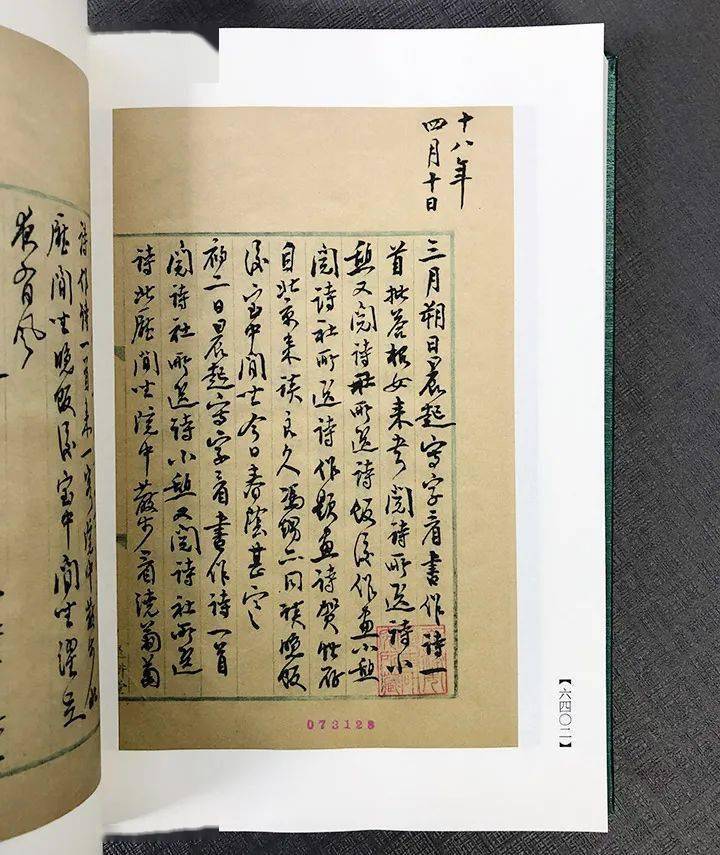 十八年
四月十日
三月朔日晨起寫字看書作詩一
首批答根女来書閱詩所選詩小
憩又閱詩社所選詩飯後作畫小憩
閱詩社所選詩作題畫詩賀性存
自北京来談良久馮甥亦同談晚飯
後室中閒坐今日春陰甚寒
初二日晨起寫字看書作詩一首
閱詩社所選詩小憩又閱詩社所選
詩北廳閒坐院中散步看澆葡萄
073128
【六四〇二】
詩作詩一首来一客院中散步
廳閒坐晚飯後室中閒坐濯足
夜有風